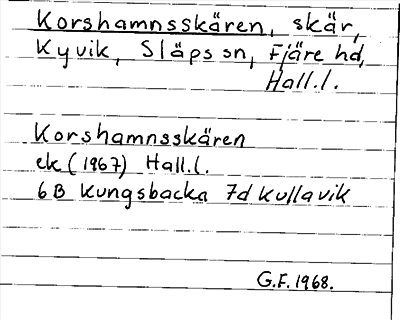 Korshamnsskären, skär,
Kyvik, Släps sn, Fjäre hd,
Hall.l.
Korshamnsskären
ek (1967) Hall.l.
6B Kungsbacka 7d Kullavik
G.F. 1968.